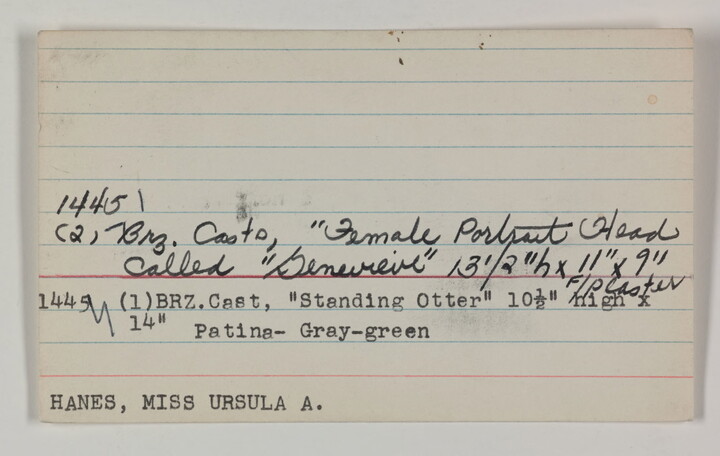 1445
(2) Brz. Casts, "Female Portrait Head
Called "Genevieve" 13 1/2"h x 11" x 9"
F/Plaster
1445 (1)BRZ.Cast, "Standing Otter" 10½" high x
14" Patina- Gray-green
HANES, MISS URSULA A.